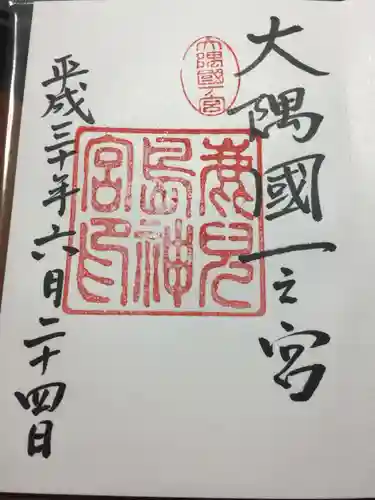 大隅國一之宮
大隅國一宮
鹿児島神宮印
平成三十年六月二十四日